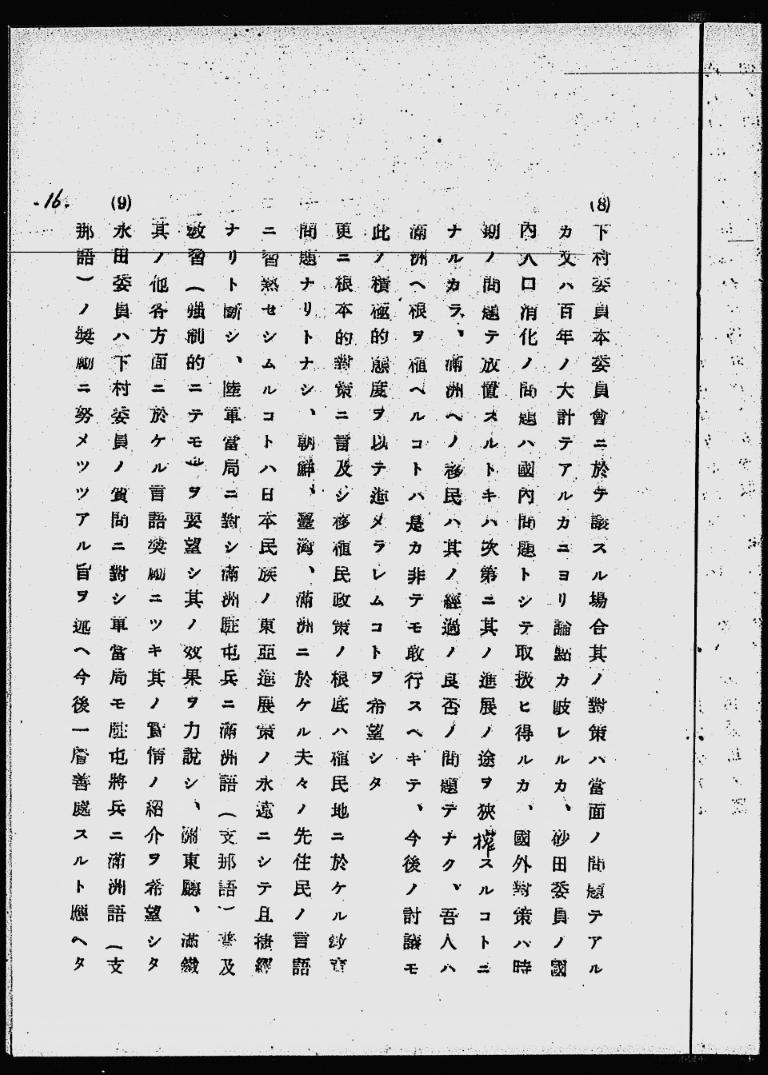 (8)
下村委員本委員會ニ於テ議スル場合其ノ對策ハ當面ノ問題テアル
カ又ハ百年ノ大計テアルカニヨリ論點カ岐レルカ、砂田委員ノ國
內人口消化ノ問題ハ國內問題トシテ取扱ヒ得ルカ、國外對策ハ時
期ノ問題テ放置スルトキハ次第ニ其ノ進展ノ途ヲ狹搾スルコトニ
ナルカラ、滿洲ヘノ移民ハ其ノ經過ノ良否ノ問題テナク、吾人ハ
滿洲ヘ根ヲ植ヘルコトハ是カ非テモ敢行スヘキテ、今後ノ討議モ
此ノ積極的態度ヲ以テ進メラレムコトヲ希望シタ
更ニ根本的對策ニ言及シ移植民政策ノ根底ハ植民地ニ於ケル教育
問題ナリトナシ、朝鮮、臺灣、滿洲ニ於ケル夫々ノ先住民ノ言語
ニ習熟セシムルコトハ日本民族ノ東亞進展策ノ永遠ニシテ且捷經
ナリト斷シ、陸軍當局ニ對シ滿洲駐屯兵ニ滿洲語(支那語)普及
敎習(强制的ニテモ)ヲ要望シ其ノ效果ヲ力說シ、關東廳、滿鐵
其ノ他各方面ニ於ケル言語奬勵ニツキ其ノ實情ノ紹介ヲ希望シタ
(9)
永田委員ハ下村委員ノ質問ニ對シ軍當局モ駐屯將兵ニ滿洲語(支
那語)ノ奬勵ニ努メツツアル旨ヲ述ヘ今後一層善處スルト應ヘタ
16.